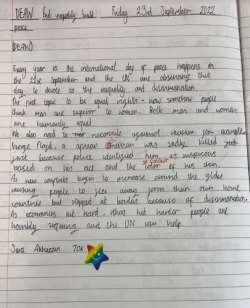 DEAR End inequality build Friday 23rd September 2022
peace
DEAR
Every year is the international day of peace happens on
the 21st September and the UN are observing this
day to devote to the inequality and discrimination.
The first topic to be equal rights - how somehow people
think men are superior to women. Both men and woman
are humanity equal.
We also need to reconcile against racism for example
George Floyd, a African American was sadly killed just
just because police identified him as suspicious
based on his act and the color of his skin.
As new conflicts begin to increase around the globe
causing people to flee away form their own home
countries but stopped at borders because of discrimination.
As economies hit hard, that hit harder people are
horribly suffering and the UN can help.